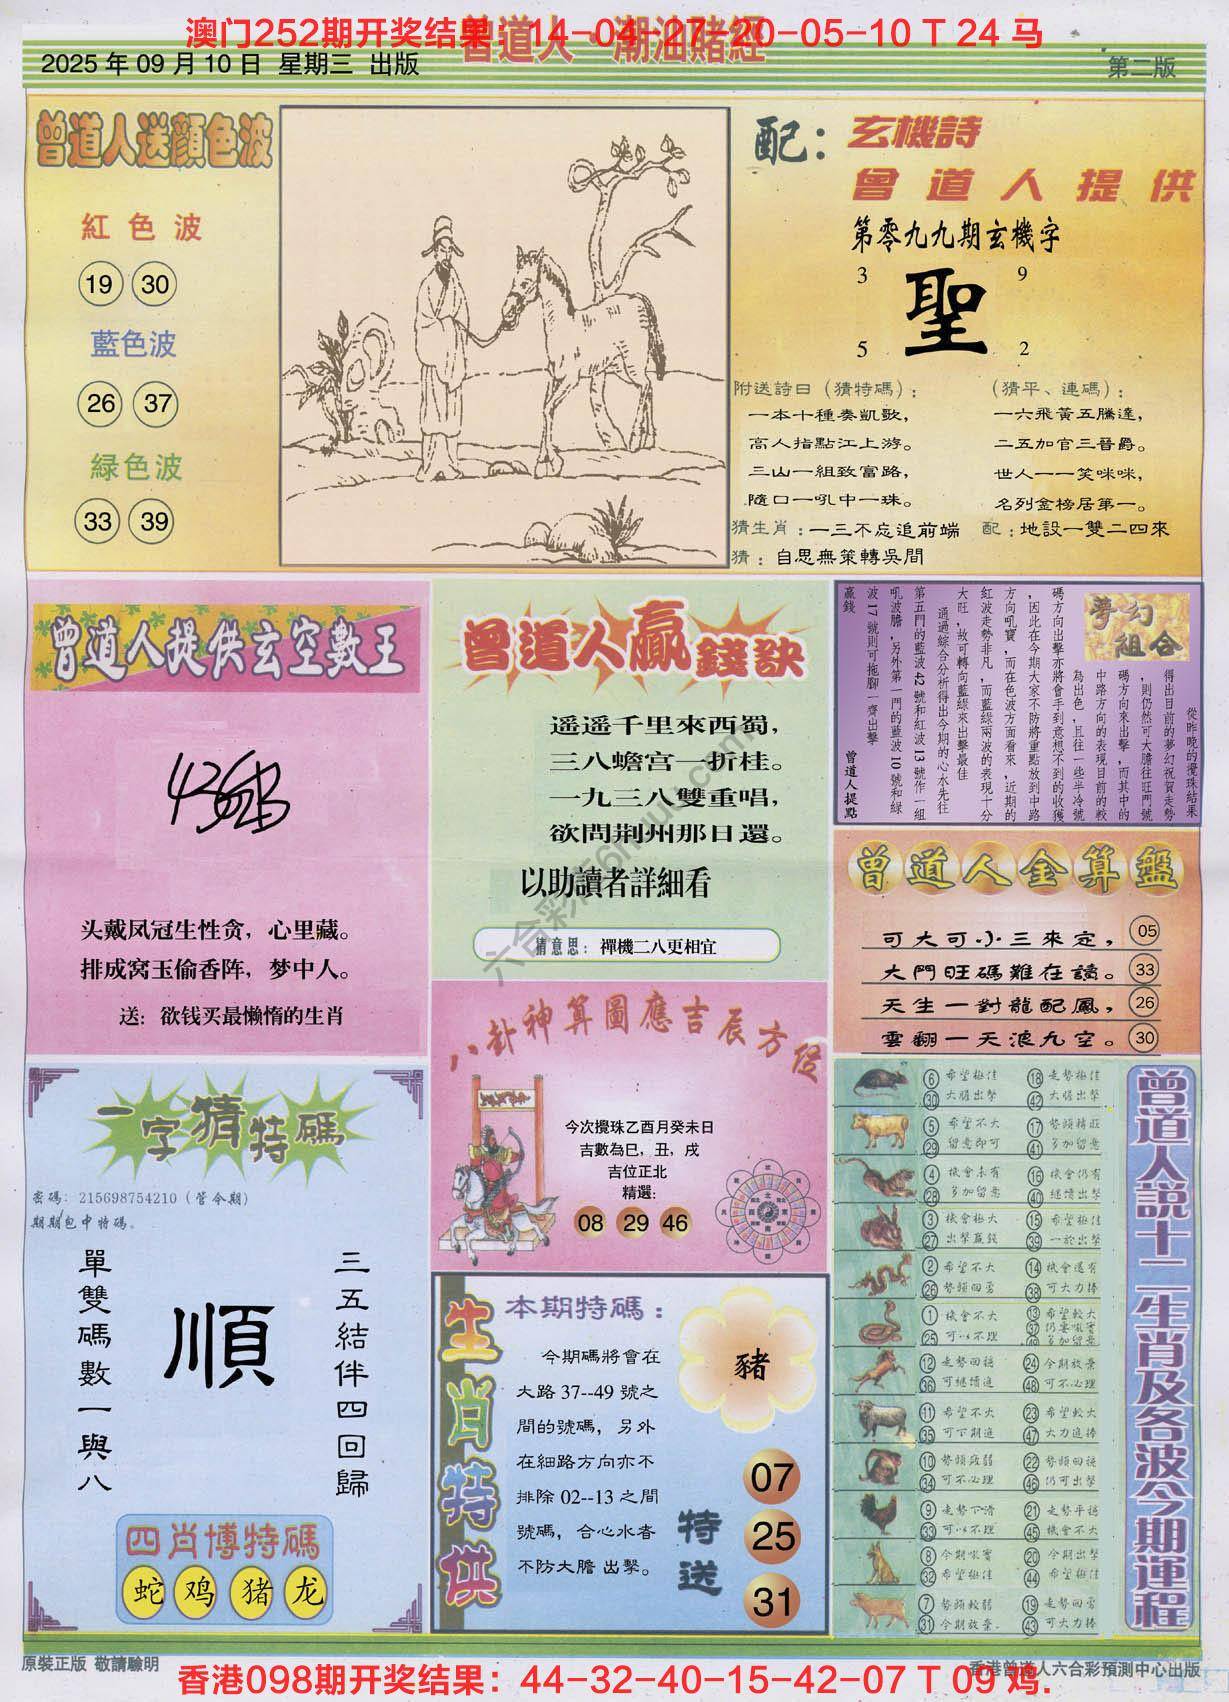 澳门252期开奖结果：14-04-27-20-05-10 T 24 马
曾道人·潮汕賭經
2025 年 09 月 10 日 星期三 出版
第二版
曾道人送顏色波
紅色波
19 30
藍色波
26 37
緑色波
33 39
配：玄機詩
曾道人提供
第零九九期玄機字
3 9
聖
5 2
附送詩曰（猜特碼）：
一本十種奏凱歌，
高人指點江上游。
三山一組致富路，
隨口一吼中一珠。
（猜平、連碼）：
一六飛黃五騰達，
二五加官三晉爵。
世人一一笑咪咪，
名列金榜居第一。
猜生肖：一三不忘追前端 配：地設一雙二四來
猜：自思無策轉吳間
曾道人提供玄空數王
头戴凤冠生性贪，心里藏。
排成窝玉偷香阵，梦中人。
送：欲钱买最懒惰的生肖
曾道人贏錢訣
遥遥千里來西蜀，
三八蟾宫一折桂。
一九三八雙重唱，
欲問荆州那日還。
以助讀者詳細看
猜意思：禪機二八更相宜
夢幻組合
從昨晚的攪珠結果
得出目前的夢幻祝賀走勢
，則仍然可大膽往旺門號
碼方向來出擊，而其中的
中路方向的表現目前的較
為出色，且往一些半冷號
碼方向出擊亦將會手到意想不到的收獲
，因此在今期大家不防將重點放到中路
方向吼寶，而在色波方面看來，近期的
紅波走勢非凡，而藍綠兩波的表現十分
大旺，故可轉向藍綠來出擊最佳
通過綜合分析得出今期的心水先往
第五門的藍波 42 號和紅波 13 號作一組
吼波膽，另外第一門的藍波 10 號和綠
波 17 號則可拖腳一齊出擊
贏錢
曾道人提點
曾道人金算盤
可大可小三來定， 05
大門旺碼難在讀。 33
天生一對龍配鳳， 26
雲翻一天浪九空。 30
八卦神算圖應吉辰方位
今次攪珠乙酉月癸未日
吉數為巳，丑，戌
吉位正北
精選：
08 29 46
一字猜特碼
密碼：215698754210（管今期）
期期包中特碼。
單雙碼數一與八
順
三五結伴四回歸
四肖博特碼
蛇 鸡 猪 龙
生肖特供
本期特碼：
今期碼將會在
大路 37--49 號之
間的號碼，另外
在細路方向亦不
排除 02--13 之間
號碼，合心水者
不防大膽 出擊。
豬
特送
07
25
31
曾道人説十二生肖及各波今期運程
6 希望極佳 18 走勢極佳
30 大膽出擊 42 大膽出擊
5 希望不大 17 勢頭精莊
29 留意即可 41 多加留意
4 機會未有 16 機會仍有
28 多加留意 40 繼續出擊
3 機會極大 15 希望極佳
27 出擊贏錢 39 一於出擊
2 希望不大 14 機會還有
26 勢頭回勇 38 可大力捧
1 機會不大 13 希望較大
25 可以不理
12 走勢回穩 24 今期放棄
36 可繼續追 48 可不必理
11 希望不大 23 希望較大
35 可下期追 47 大力追捧
10 勢頭疲弱 22 勢頭回穩
34 可不必理 46 仍可出擊
9 走勢下滑 21 走勢平穩
33 可以不理 45 機會不大
8 今期吼寶 20 今期出擊
32 希望極佳 44 希望極佳
7 勢頭較弱 19 走勢回勇
31 今期放棄. 43 可大力捧
原裝正版 敬請驗明
香港曾道人六合彩預測中心出版
香港098期开奖结果：44-32-40-15-42-07 T 09 鸡.